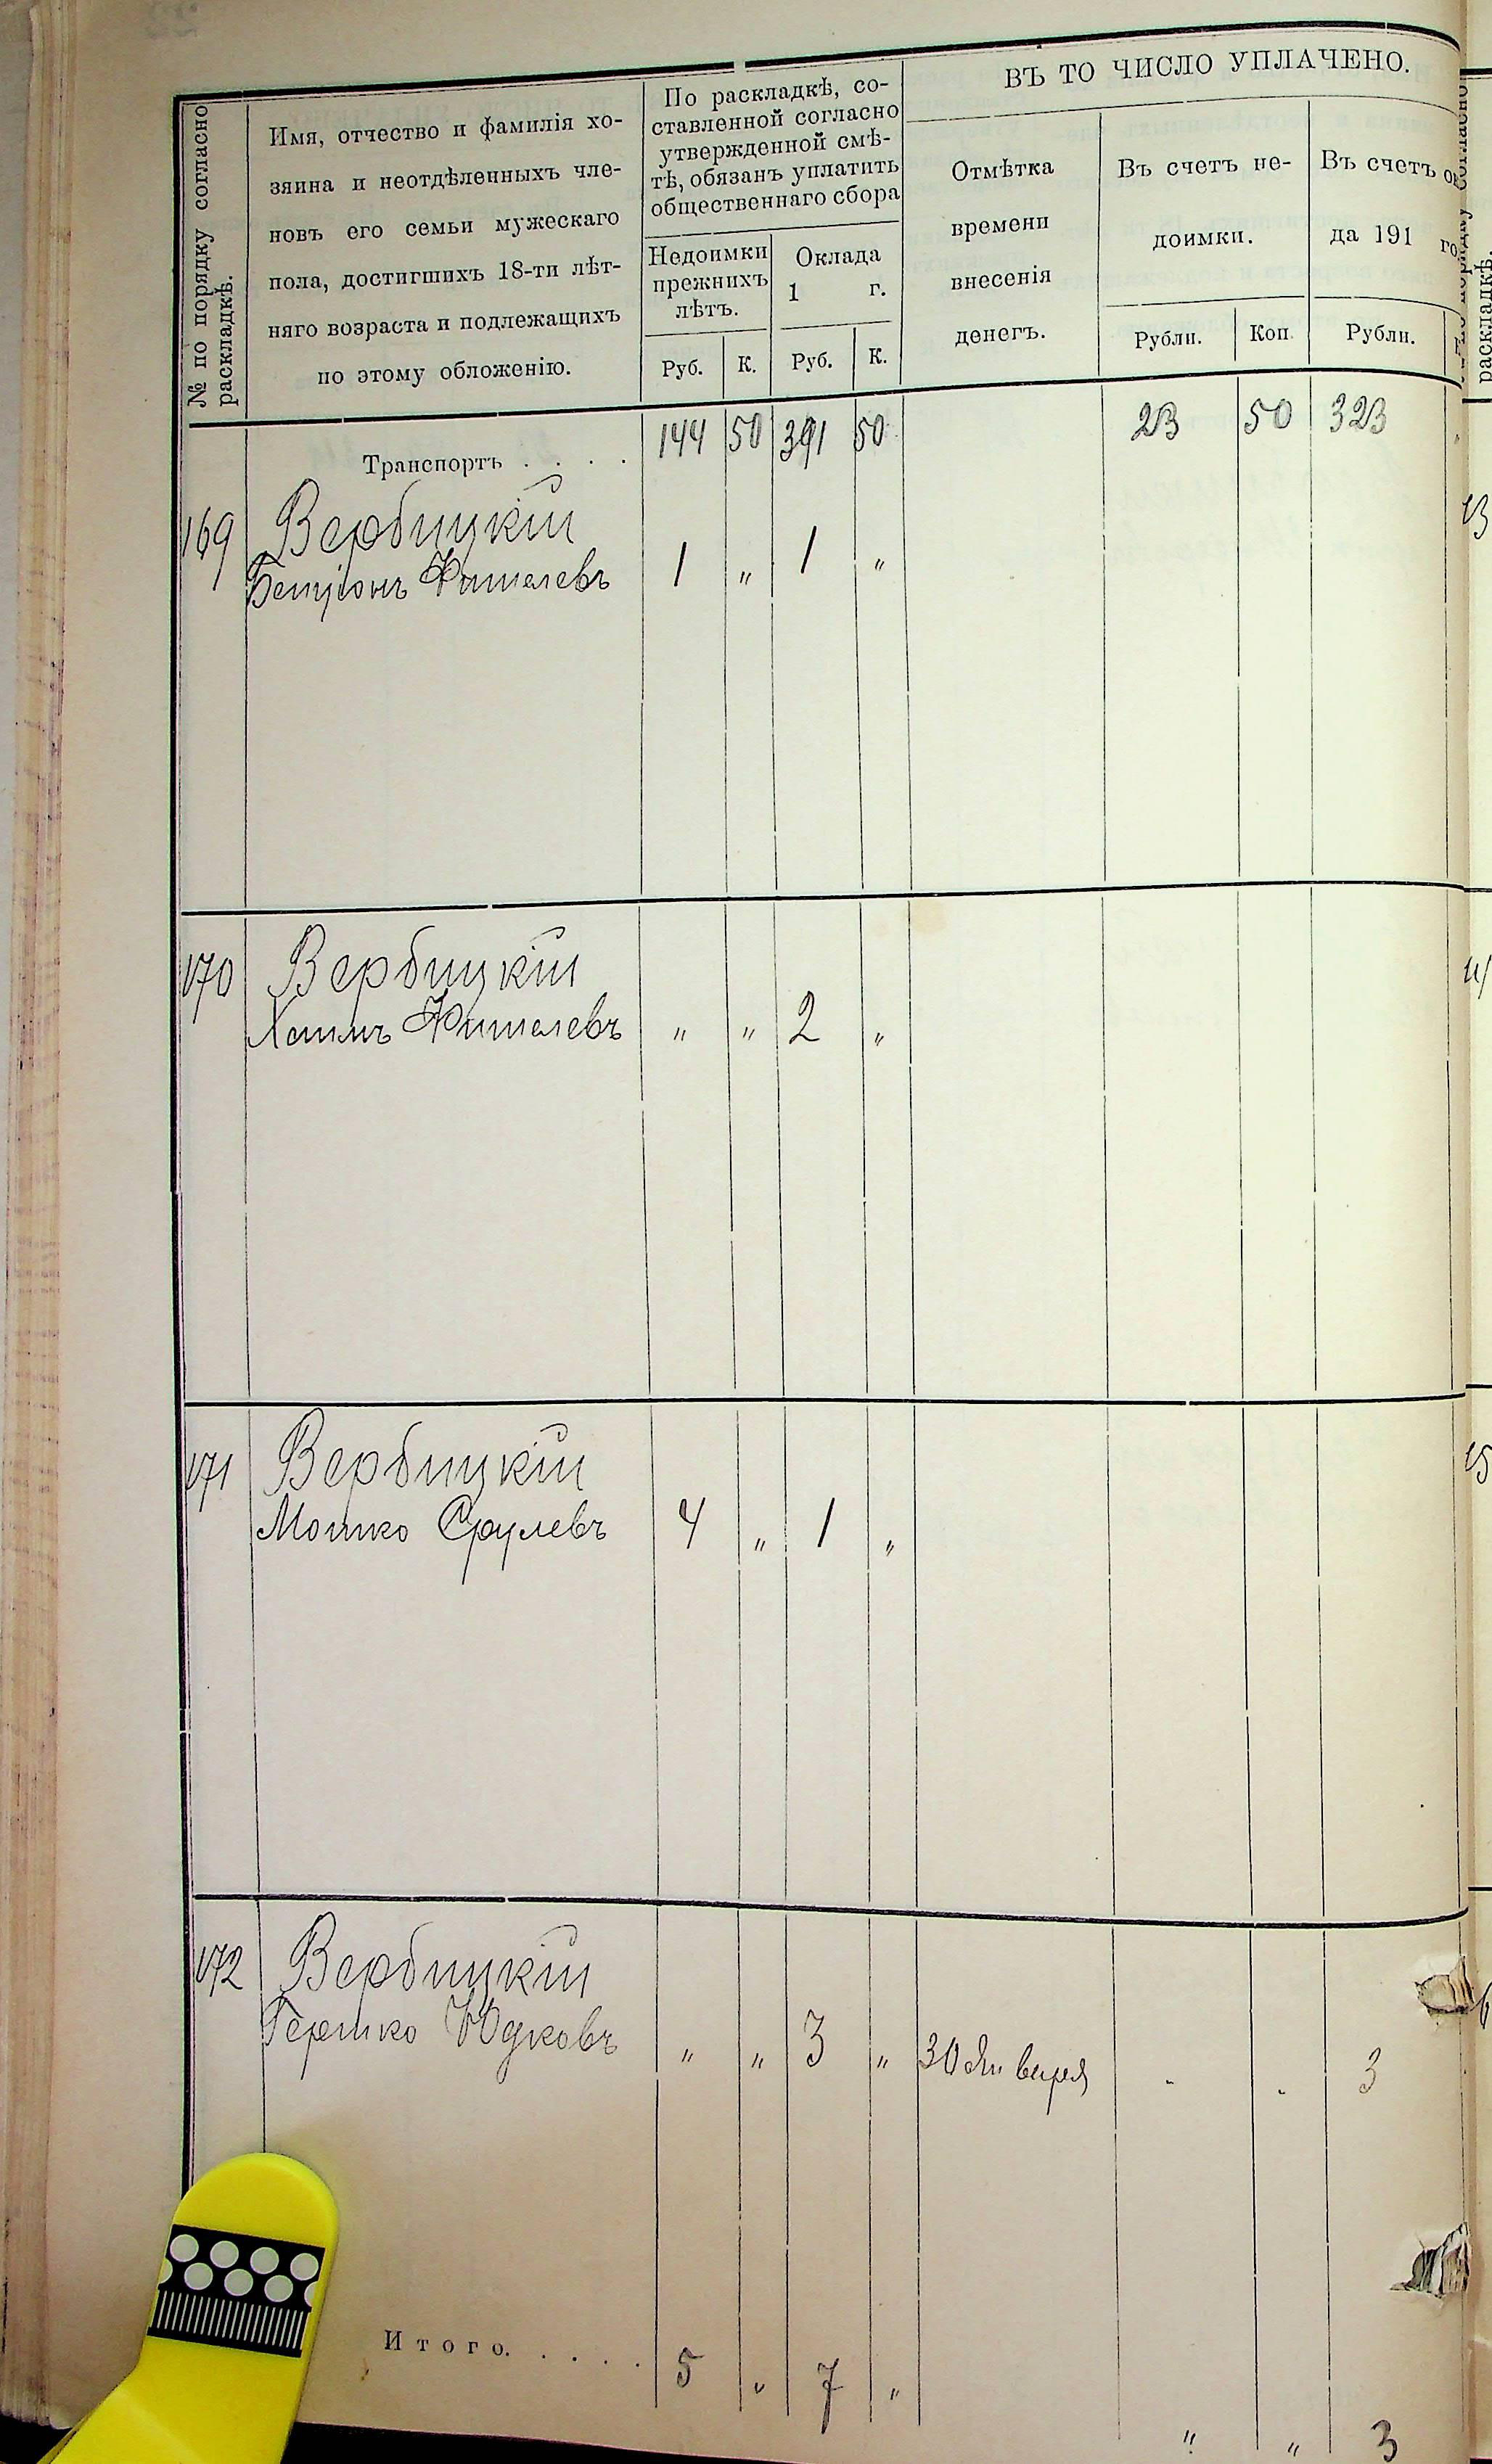 № по порядку согласно
раскладкѣ.
Имя, отчество и фамилія хо-
зяина и неотдѣленныхъ чле-
новъ его семьи мужескаго
пола, достигшихъ 18-ти лѣт-
няго возраста и подлежащихъ
по этому обложенію.
По раскладкѣ, со-
ставленной согласно
утвержденной смѣ-
тѣ, обязанъ уплатить
общественнаго сбора
Недоимки
прежнихъ
лѣтъ.
Оклада
1 г.
Руб. К. Руб. К.
ВЪ ТО ЧИСЛО УПЛАЧЕНО.
Отмѣтка
времени
внесенія
денегъ.
Въ счетъ не-
доимки.
Рубли. Коп.
Въ счетъ
да 191 го
Рубли.
Транспортъ . . . . 144 50 391 50 23 50 323
169 Вербицкій
Фишелевъ 1 „ 1 „
170 Вербицкій
Хаимъ Фишелевъ „ „ 2 „
171 Вербицкій
Мошко Срулевъ 4 „ 1 „
172 Вербицкій
Гершко Юдковъ „ „ 3 „ 30 Января „ „ 3
Итого. . . . . 5 „ 7 „ „ „ 3
согласно
раскладкѣ.